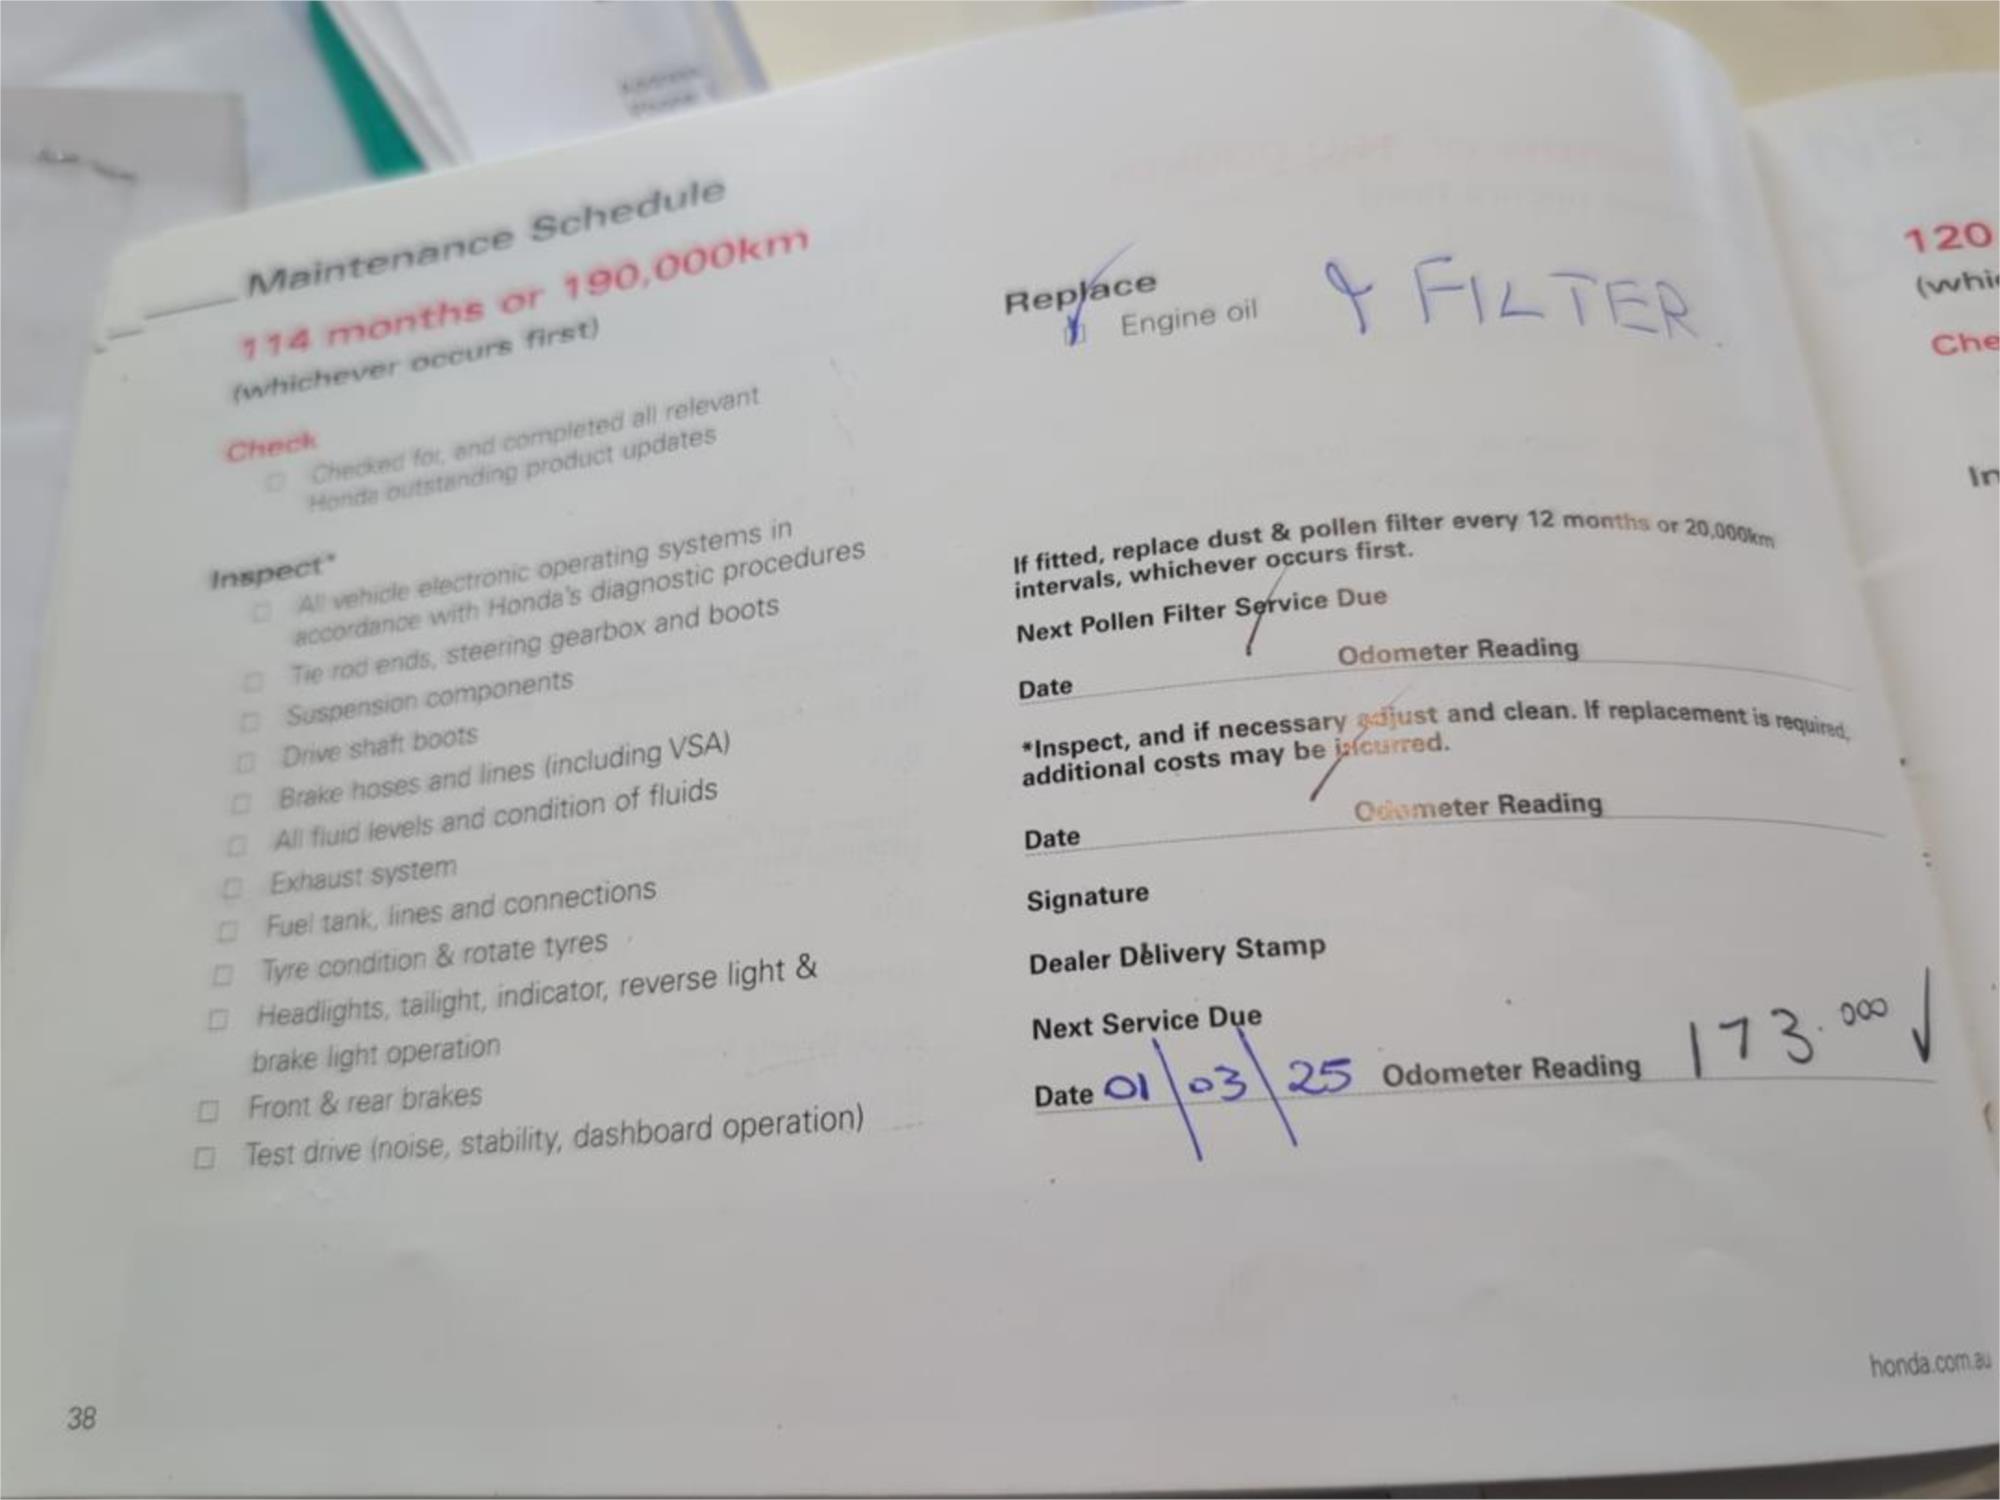 Maintenance Schedule
114 months or 190,000km
(whichever occurs first)
Check
Checked for, and completed all relevant
Honda outstanding product updates
Inspect*
All vehicle electronic operating systems in
accordance with Honda's diagnostic procedures
Tie rod ends, steering gearbox and boots
Suspension components
Drive shaft boots
Brake hoses and lines (including VSA)
All fluid levels and condition of fluids
Exhaust system
Fuel tank, lines and connections
Tyre condition & rotate tyres
Headlights, tailight, indicator, reverse light &
brake light operation
Front & rear brakes
Test drive (noise, stability, dashboard operation)
38
Replace
Engine oil & FILTER
If fitted, replace dust & pollen filter every 12 months or 20,000km
intervals, whichever occurs first.
Next Pollen Filter Service Due
Date Odometer Reading
*Inspect, and if necessary adjust and clean. If replacement is required,
additional costs may be incurred.
Date Odometer Reading
Signature
Dealer Delivery Stamp
Next Service Due
Date 01/03/25 Odometer Reading 173.000
honda.com.au
120
(whi
Che
In